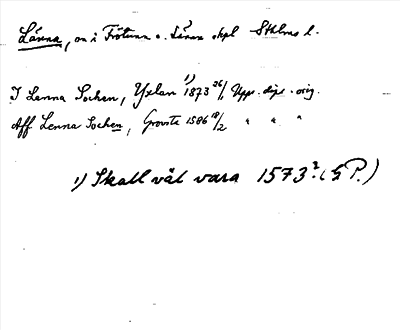 Länna, sn i Frötuna o. Länna skpl Sthlms l.
I Lenna Sochen, Yxlan 1) 1873 26/1 Upps. dipl. orig.
Aff Lenna Sochen, Growsta 1586 18/2 " " "
1) Skall väl vara 1573? (G P.)